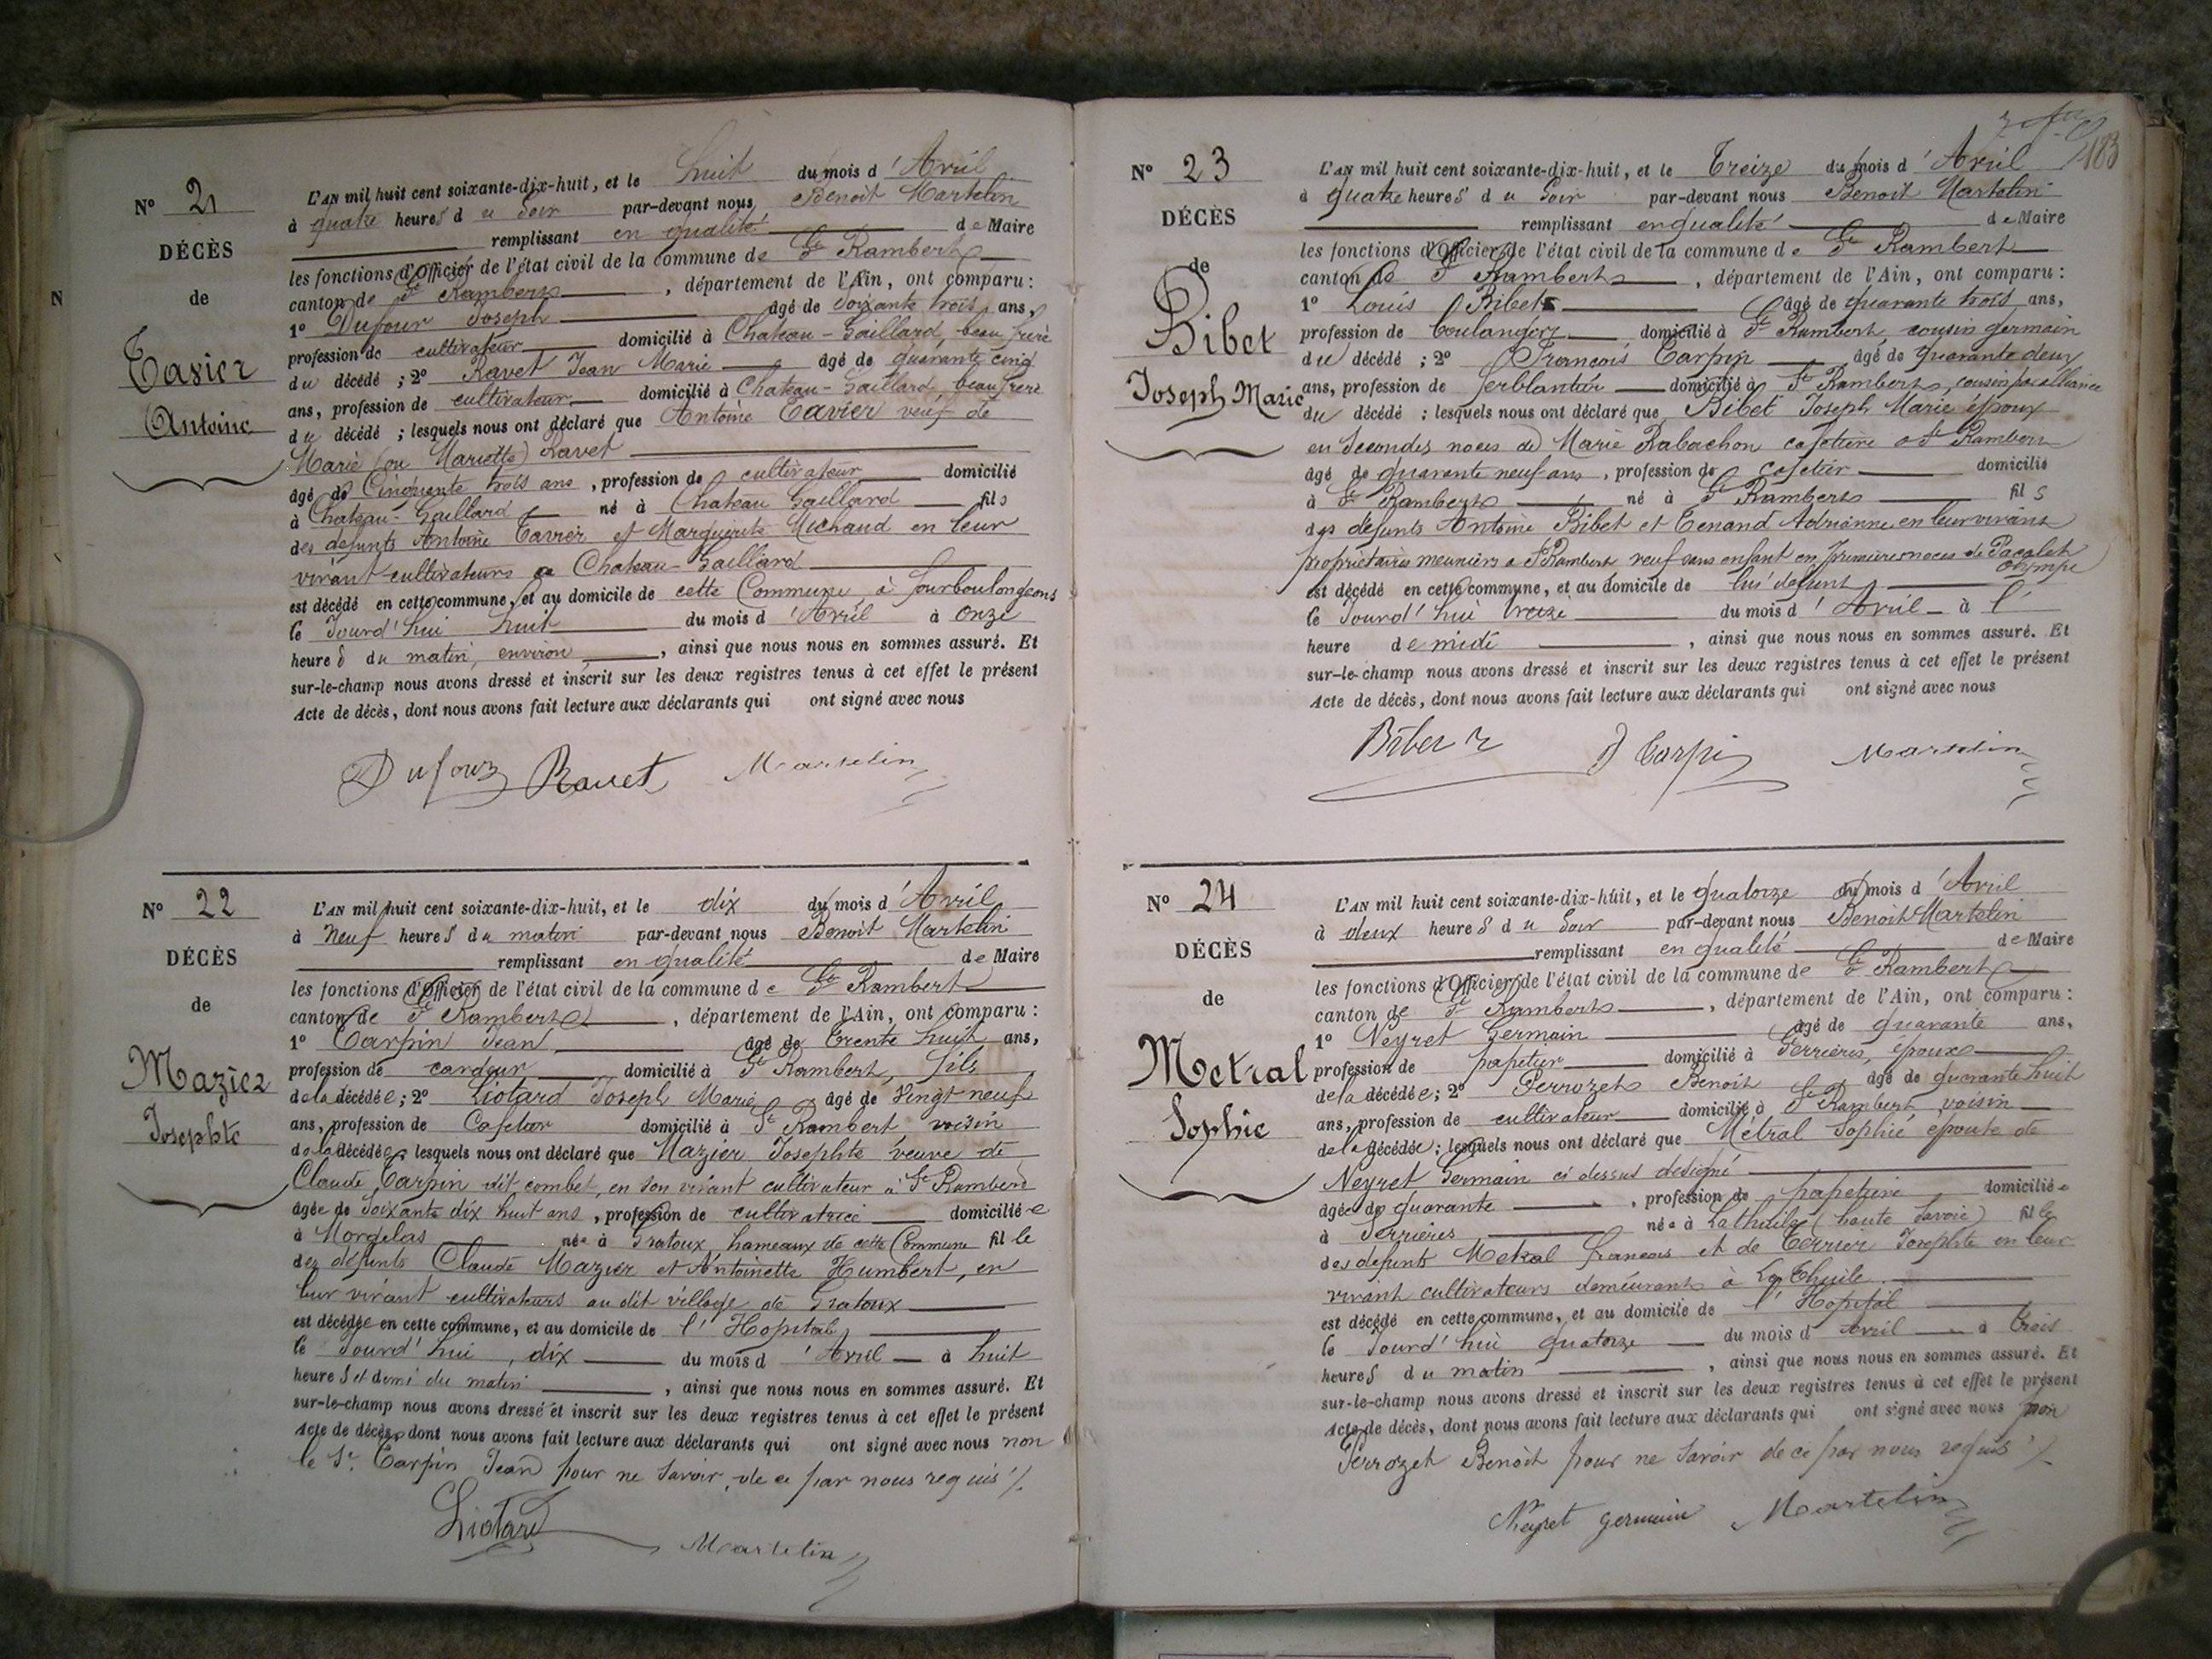 N
N° 21
DÉCÈS
de
Tavier
Antoine
L'AN mil huit cent soixante-dix-huit, et le huit du mois d'Avril
à quatre heures du soir par-devant nous Benoit Martelin
remplissant en qualité de Maire
les fonctions d'Officier de l'état civil de la commune de St Rambert
canton de St Rambert, département de l'Ain, ont comparu :
1° Dufour Joseph âgé de soixante trois ans,
profession de cultivateur domicilié à Chateau-Gaillard, beau frère
du décédé ; 2° Ravet Jean Marie âgé de quarante cinq
ans, profession de cultivateur domicilié à Chateau-Gaillard, beau frere
du décédé ; lesquels nous ont déclaré que Antoine Tavier veuf de
Marie (ou Mariette) Ravet
âgé de Cinquante trois ans, profession de cultivateur domicilié
à Chateau-Gaillard né à Chateau Gaillard fils
des defunts Antoine Tavier et Marguerite Michaud en leur
vivant cultivateurs a Chateau-Gaillard
est décédé en cette commune, et au domicile de cette Commune, à
le Jourd'hui huit du mois d'Avril à onze
heures du matin, environ, ainsi que nous nous en sommes assuré. Et
sur-le-champ nous avons dressé et inscrit sur les deux registres tenus à cet effet le présent
Acte de décès, dont nous avons fait lecture aux déclarants qui ont signé avec nous
Dufour Ravet Martelin
N° 22
DÉCÈS
de
Mazier
Josephte
L'AN mil huit cent soixante-dix-huit, et le dix du mois d'Avril
à neuf heures du matin par-devant nous Benoit Martelin
remplissant en qualité de Maire
les fonctions d'Officier de l'état civil de la commune de St Rambert
canton de St Rambert, département de l'Ain, ont comparu :
1° Carpin Jean âgé de trente huit ans,
profession de cardeur domicilié à St Rambert, fils
de la décédée ; 2° Liotard Joseph Marie âgé de vingt neuf
ans, profession de Cafetier domicilié à St Rambert voisin
de la décédée ; lesquels nous ont déclaré que Mazier Josephte veuve de
Claude Carpin dit combet, en son vivant cultivateur à St Rambert
âgée de soixante dix huit ans, profession de cultivatrice domiciliée
à Morgelas née à Gratoux, hameaux de cette Commune fille
des défunts Claude Mazier et Antoinette Humbert, en
leur vivant cultivateurs au dit village de Gratoux
est décédée en cette commune, et au domicile de l'Hopital
le Jourd'hui, dix du mois d'Avril à huit
heures et demi du matin, ainsi que nous nous en sommes assuré. Et
sur-le-champ nous avons dressé et inscrit sur les deux registres tenus à cet effet le présent
Acte de décès, dont nous avons fait lecture aux déclarants qui ont signé avec nous non
le Sr. Carpin Jean pour ne savoir, de ce par nous requis ./.
Liotard
Martelin
183
N° 23
DÉCÈS
de
Bibet
Joseph Marie
L'AN mil huit cent soixante-dix-huit, et le Treize du mois d'Avril
à quatre heures du soir par-devant nous Benoit Martelin
remplissant en qualité de Maire
les fonctions d'Officier de l'état civil de la commune de St Rambert
canton de St Rambert, département de l'Ain, ont comparu :
1° Louis Bibet âgé de quarante trois ans,
profession de boulanger domicilié à St Rambert, cousin germain
du décédé ; 2° François Carpin âgé de quarante deux
ans, profession de ferblantier domicilié à St Rambert, cousin par alliance
du décédé ; lesquels nous ont déclaré que Bibet Joseph Marie époux
en secondes noces de Marie Rabachon cafetière a St Rambert
âgé de quarante neuf ans, profession de cafetier domicilié
à St Rambert né à St Rambert fils
des defunts Antoine Bibet et Tenand Adrianne en leur vivant
propriétaires meuniers a St Rambert veuf sans enfant en premières noces de Pacalet
olympe
est décédé en cette commune, et au domicile de lui défunt
le Jourd'hui treize du mois d'Avril à l'
heure de midi, ainsi que nous nous en sommes assuré. Et
sur-le-champ nous avons dressé et inscrit sur les deux registres tenus à cet effet le présent
Acte de décès, dont nous avons fait lecture aux déclarants qui ont signé avec nous
Bibet F Carpin Martelin
N° 24
DÉCÈS
de
Metral
Sophie
L'AN mil huit cent soixante-dix-huit, et le quatorze du mois d'Avril
à deux heures du soir par-devant nous Benoit Martelin
remplissant en qualité de Maire
les fonctions d'Officier de l'état civil de la commune de St Rambert
canton de St Rambert, département de l'Ain, ont comparu :
1° Neyret Germain âgé de quarante ans,
profession de papetier domicilié à Serrières, époux
de la décédée ; 2° Perrozet Benoit âgé de quarante huit
ans, profession de cultivateur domicilié à St Rambert, voisin
de la décédée ; lesquels nous ont déclaré que Métral Sophie épouse de
Neyret Germain ci dessus désigné
âgée de quarante, profession de papetière domiciliée
à Serrières née à Lathuile (haute Savoie) fille
des defunts Metral francois et de Terrier Josephte en leur
vivant cultivateurs demeurants à La Thuile
est décédé en cette commune, et au domicile de l'Hopital
le Jourd'hui quatorze du mois d'Avril à trois
heures du matin, ainsi que nous nous en sommes assuré. Et
sur-le-champ nous avons dressé et inscrit sur les deux registres tenus à cet effet le présent
Acte de décès, dont nous avons fait lecture aux déclarants qui ont signé avec nous non
Perrozet Benoit pour ne savoir de ce par nous requis ./.
Neyret germain Martelin